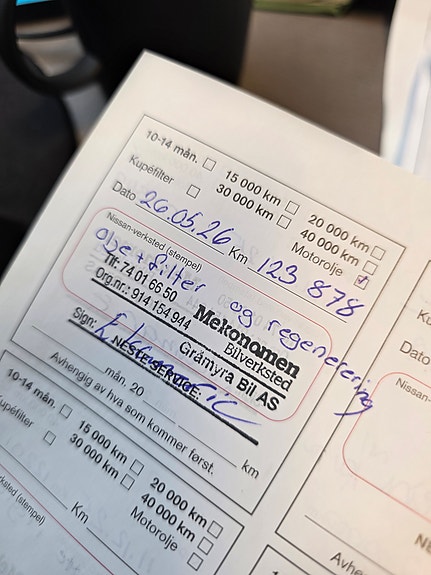 10-14 mån. 15 000 km 20 000 km
Kupéfilter 30 000 km 40 000 km
Motorolje
Dato 26.05.26 Km 123 878
Nissan-verksted (stempel)
olje + filter og regenerering
Mekonomen
Bilverksted
Tlf: 74 01 66 50
Org.nr.: 914 154 944
Gråmyra Bil AS
Sign:
NESTE SERVICE:
mån. 20 km
Avhengig av hva som kommer først.
10-14 mån. 15 000 km 20 000 km
Kupéfilter 30 000 km 40 000 km
Motorolje
Km
verksted (stempel)
Ku
Dato
Nissan-
NE
Avhe